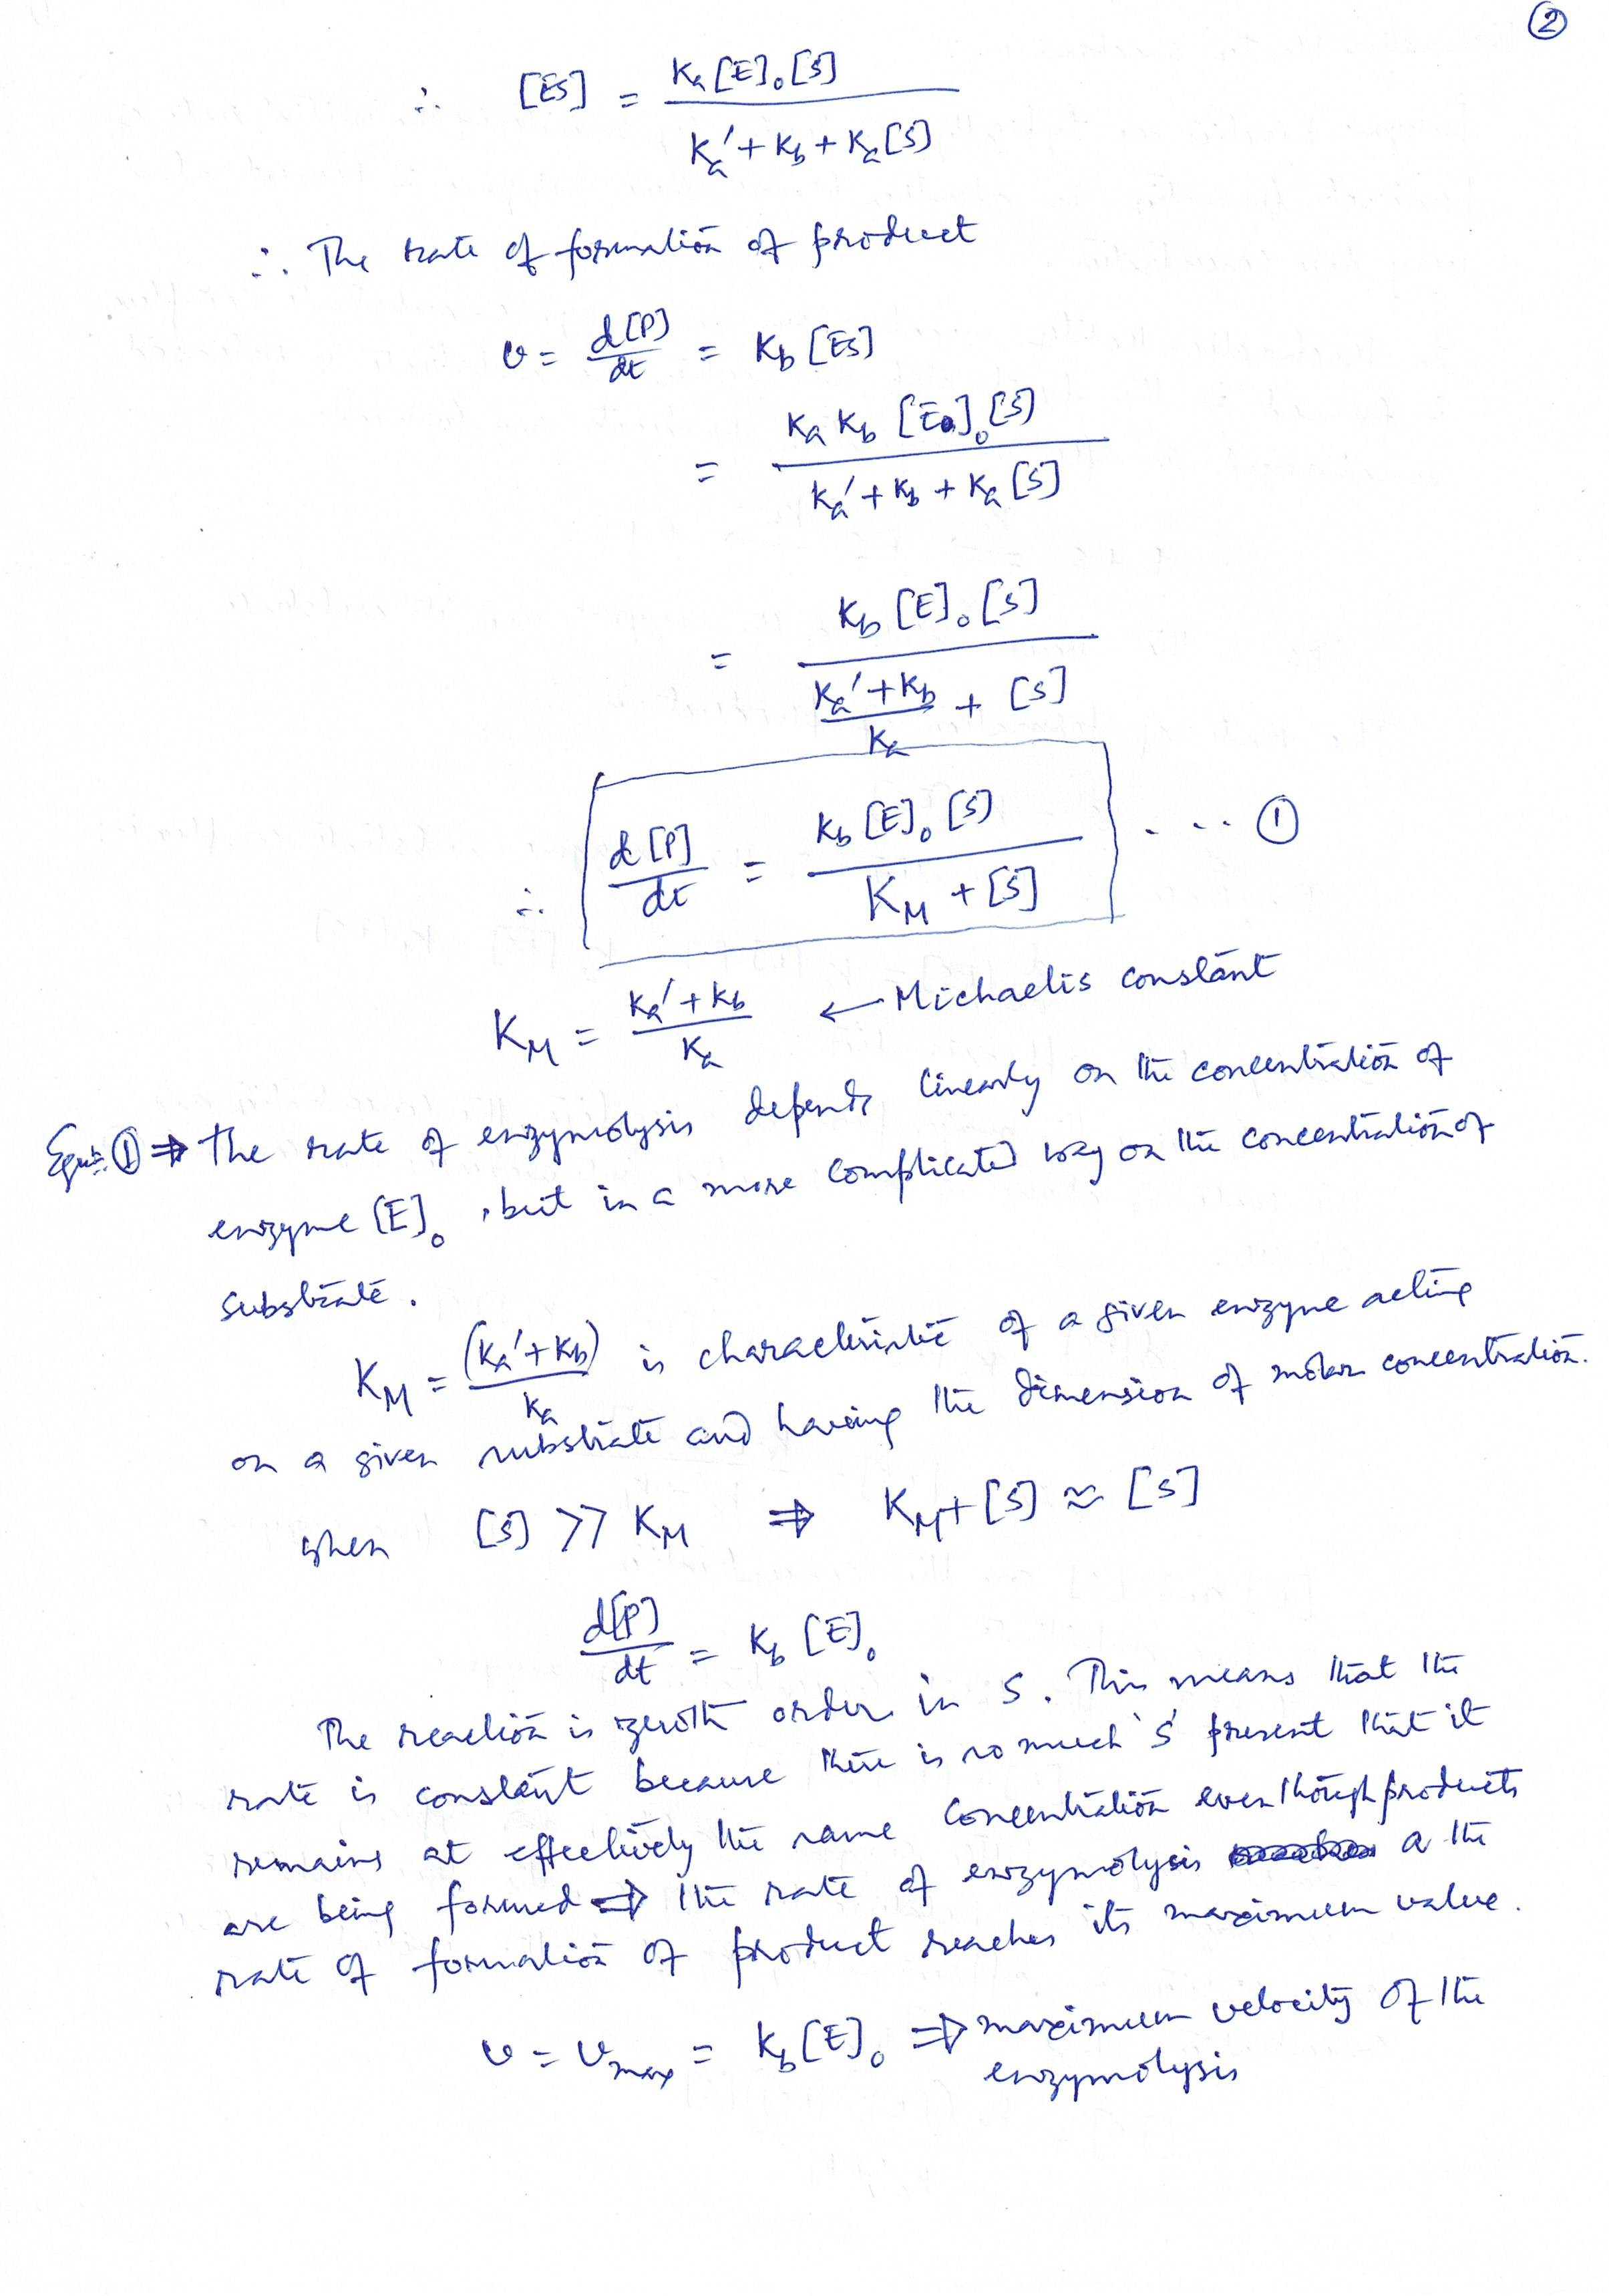 ②
∴ [ES] = kₐ[E]₀[S] / (kₐ′ + k_b + kₐ[S])
∴ The rate of formation of product
v = d[P]/dt = k_b [ES]
= kₐ k_b [E]₀[S] / (kₐ′ + k_b + kₐ[S])
= k_b [E]₀[S] / ((kₐ′ + k_b)/kₐ + [S])
∴ d[P]/dt = k_b [E]₀ [S] / (K_M + [S]) . ... ①
K_M = (kₐ′ + k_b)/kₐ ← Michaelis constant
Eqn. ① ⇒ The rate of enzymolysis depends linearly on the concentration of
enzyme [E]₀, but in a more complicated way on the concentration of
substrate.
K_M = (kₐ′ + k_b)/kₐ is characteristic of a given enzyme acting
on a given substrate and having the dimension of molar concentration.
when [S] >> K_M ⇒ K_M + [S] ≈ [S]
d[P]/dt = k_b [E]₀
The reaction is zeroth order in S. This means that the
rate is constant because there is so much 'S' present that it
remains at effectively the same concentration even though products
are being formed ⇒ the rate of enzymolysis a the
rate of formation of product reaches its maximum value.
v = v_max = k_b [E]₀ ⇒ maximum velocity of the
enzymolysis